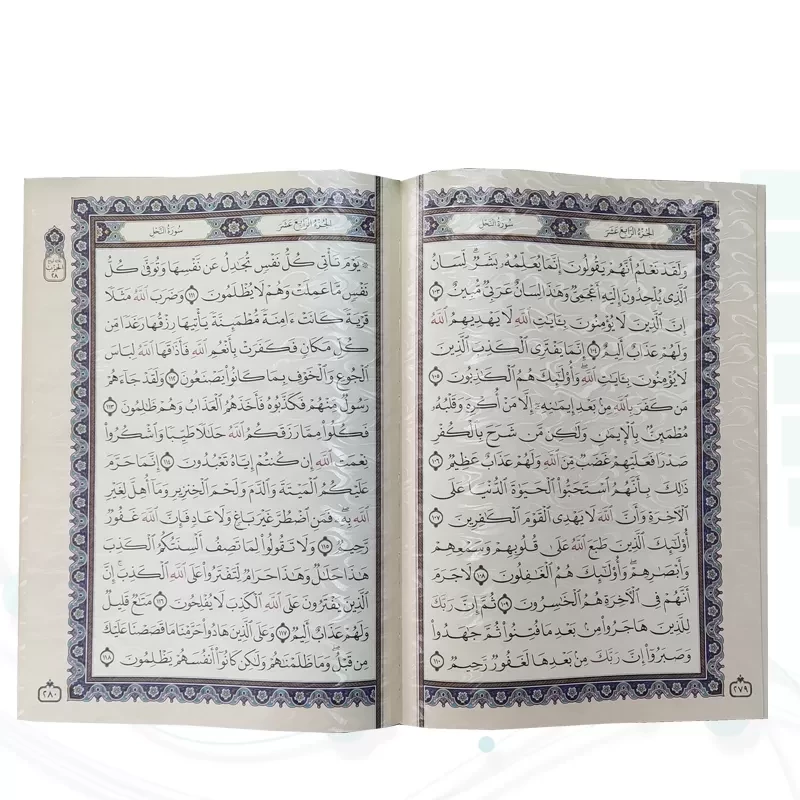 سُورَةُ النَّحْلِ
الجُزْءُ الرَّابِعَ عَشَرَ
وَلَقَدْ نَعْلَمُ أَنَّهُمْ يَقُولُونَ إِنَّمَا يُعَلِّمُهُۥ بَشَرٌ ۗ لِّسَانُ
ٱلَّذِى يُلْحِدُونَ إِلَيْهِ أَعْجَمِىٌّ وَهَٰذَا لِسَانٌ عَرَبِىٌّ مُّبِينٌ ١٠٣
إِنَّ ٱلَّذِينَ لَا يُؤْمِنُونَ بِـَٔايَٰتِ ٱللَّهِ لَا يَهْدِيهِمُ ٱللَّهُ
وَلَهُمْ عَذَابٌ أَلِيمٌ ١٠٤ إِنَّمَا يَفْتَرِى ٱلْكَذِبَ ٱلَّذِينَ
لَا يُؤْمِنُونَ بِـَٔايَٰتِ ٱللَّهِ ۖ وَأُو۟لَٰٓئِكَ هُمُ ٱلْكَٰذِبُونَ ١٠٥
مَن كَفَرَ بِٱللَّهِ مِنۢ بَعْدِ إِيمَٰنِهِۦٓ إِلَّا مَنْ أُكْرِهَ وَقَلْبُهُۥ
مُطْمَئِنٌّۢ بِٱلْإِيمَٰنِ وَلَٰكِن مَّن شَرَحَ بِٱلْكُفْرِ
صَدْرًا فَعَلَيْهِمْ غَضَبٌ مِّنَ ٱللَّهِ وَلَهُمْ عَذَابٌ عَظِيمٌ ١٠٦
ذَٰلِكَ بِأَنَّهُمُ ٱسْتَحَبُّوا۟ ٱلْحَيَوٰةَ ٱلدُّنْيَا عَلَى
ٱلْـَٔاخِرَةِ وَأَنَّ ٱللَّهَ لَا يَهْدِى ٱلْقَوْمَ ٱلْكَٰفِرِينَ ١٠٧
أُو۟لَٰٓئِكَ ٱلَّذِينَ طَبَعَ ٱللَّهُ عَلَىٰ قُلُوبِهِمْ وَسَمْعِهِمْ
وَأَبْصَٰرِهِمْ ۖ وَأُو۟لَٰٓئِكَ هُمُ ٱلْغَٰفِلُونَ ١٠٨ لَا جَرَمَ
أَنَّهُمْ فِى ٱلْـَٔاخِرَةِ هُمُ ٱلْخَٰسِرُونَ ١٠٩ ثُمَّ إِنَّ رَبَّكَ
لِلَّذِينَ هَاجَرُوا۟ مِنۢ بَعْدِ مَا فُتِنُوا۟ ثُمَّ جَٰهَدُوا۟
وَصَبَرُوٓا۟ إِنَّ رَبَّكَ مِنۢ بَعْدِهَا لَغَفُورٌ رَّحِيمٌ ١١٠
٢٧٩
الجُزْءُ الرَّابِعَ عَشَرَ
سُورَةُ النَّحْلِ
۞ يَوْمَ تَأْتِى كُلُّ نَفْسٍ تُجَٰدِلُ عَن نَّفْسِهَا وَتُوَفَّىٰ كُلُّ
نَفْسٍ مَّا عَمِلَتْ وَهُمْ لَا يُظْلَمُونَ ١١١ وَضَرَبَ ٱللَّهُ مَثَلًا
قَرْيَةً كَانَتْ ءَامِنَةً مُّطْمَئِنَّةً يَأْتِيهَا رِزْقُهَا رَغَدًا مِّن
كُلِّ مَكَانٍ فَكَفَرَتْ بِأَنْعُمِ ٱللَّهِ فَأَذَٰقَهَا ٱللَّهُ لِبَاسَ
ٱلْجُوعِ وَٱلْخَوْفِ بِمَا كَانُوا۟ يَصْنَعُونَ ١١٢ وَلَقَدْ جَآءَهُمْ
رَسُولٌ مِّنْهُمْ فَكَذَّبُوهُ فَأَخَذَهُمُ ٱلْعَذَابُ وَهُمْ ظَٰلِمُونَ ١١٣
فَكُلُوا۟ مِمَّا رَزَقَكُمُ ٱللَّهُ حَلَٰلًا طَيِّبًا وَٱشْكُرُوا۟
نِعْمَتَ ٱللَّهِ إِن كُنتُمْ إِيَّاهُ تَعْبُدُونَ ١١٤ إِنَّمَا حَرَّمَ
عَلَيْكُمُ ٱلْمَيْتَةَ وَٱلدَّمَ وَلَحْمَ ٱلْخِنزِيرِ وَمَآ أُهِلَّ لِغَيْرِ
ٱللَّهِ بِهِۦ ۖ فَمَنِ ٱضْطُرَّ غَيْرَ بَاغٍ وَلَا عَادٍ فَإِنَّ ٱللَّهَ غَفُورٌ
رَّحِيمٌ ١١٥ وَلَا تَقُولُوا۟ لِمَا تَصِفُ أَلْسِنَتُكُمُ ٱلْكَذِبَ
هَٰذَا حَلَٰلٌ وَهَٰذَا حَرَامٌ لِّتَفْتَرُوا۟ عَلَى ٱللَّهِ ٱلْكَذِبَ ۚ إِنَّ
ٱلَّذِينَ يَفْتَرُونَ عَلَى ٱللَّهِ ٱلْكَذِبَ لَا يُفْلِحُونَ ١١٦ مَتَٰعٌ قَلِيلٌ
وَلَهُمْ عَذَابٌ أَلِيمٌ ١١٧ وَعَلَى ٱلَّذِينَ هَادُوا۟ حَرَّمْنَا مَا قَصَصْنَا عَلَيْكَ
مِن قَبْلُ ۖ وَمَا ظَلَمْنَٰهُمْ وَلَٰكِن كَانُوٓا۟ أَنفُسَهُمْ يَظْلِمُونَ ١١٨
الحِزْبِ
٢٨
٢٨٠